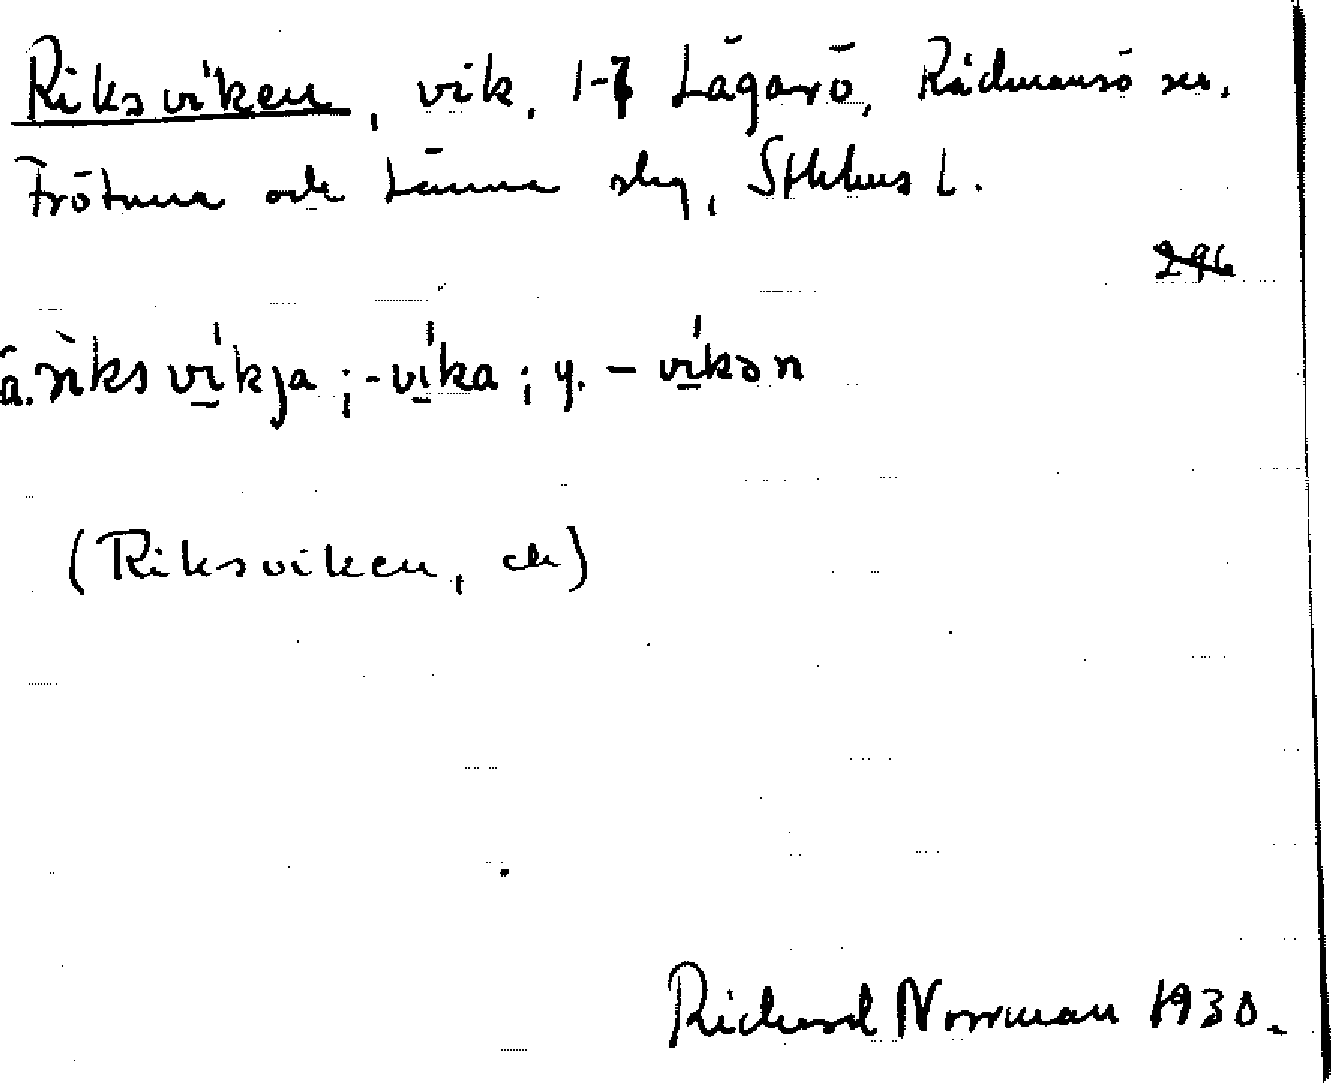 Riksviken, vik, 1-7 Lågarö, Rådmansö sn.
Frötuna och Länna skg, Sthlms l.
296
ä. rìks vikja ; -vika ; y. – vikən
(Riksviken, ek)
Richard Norrman 1930.